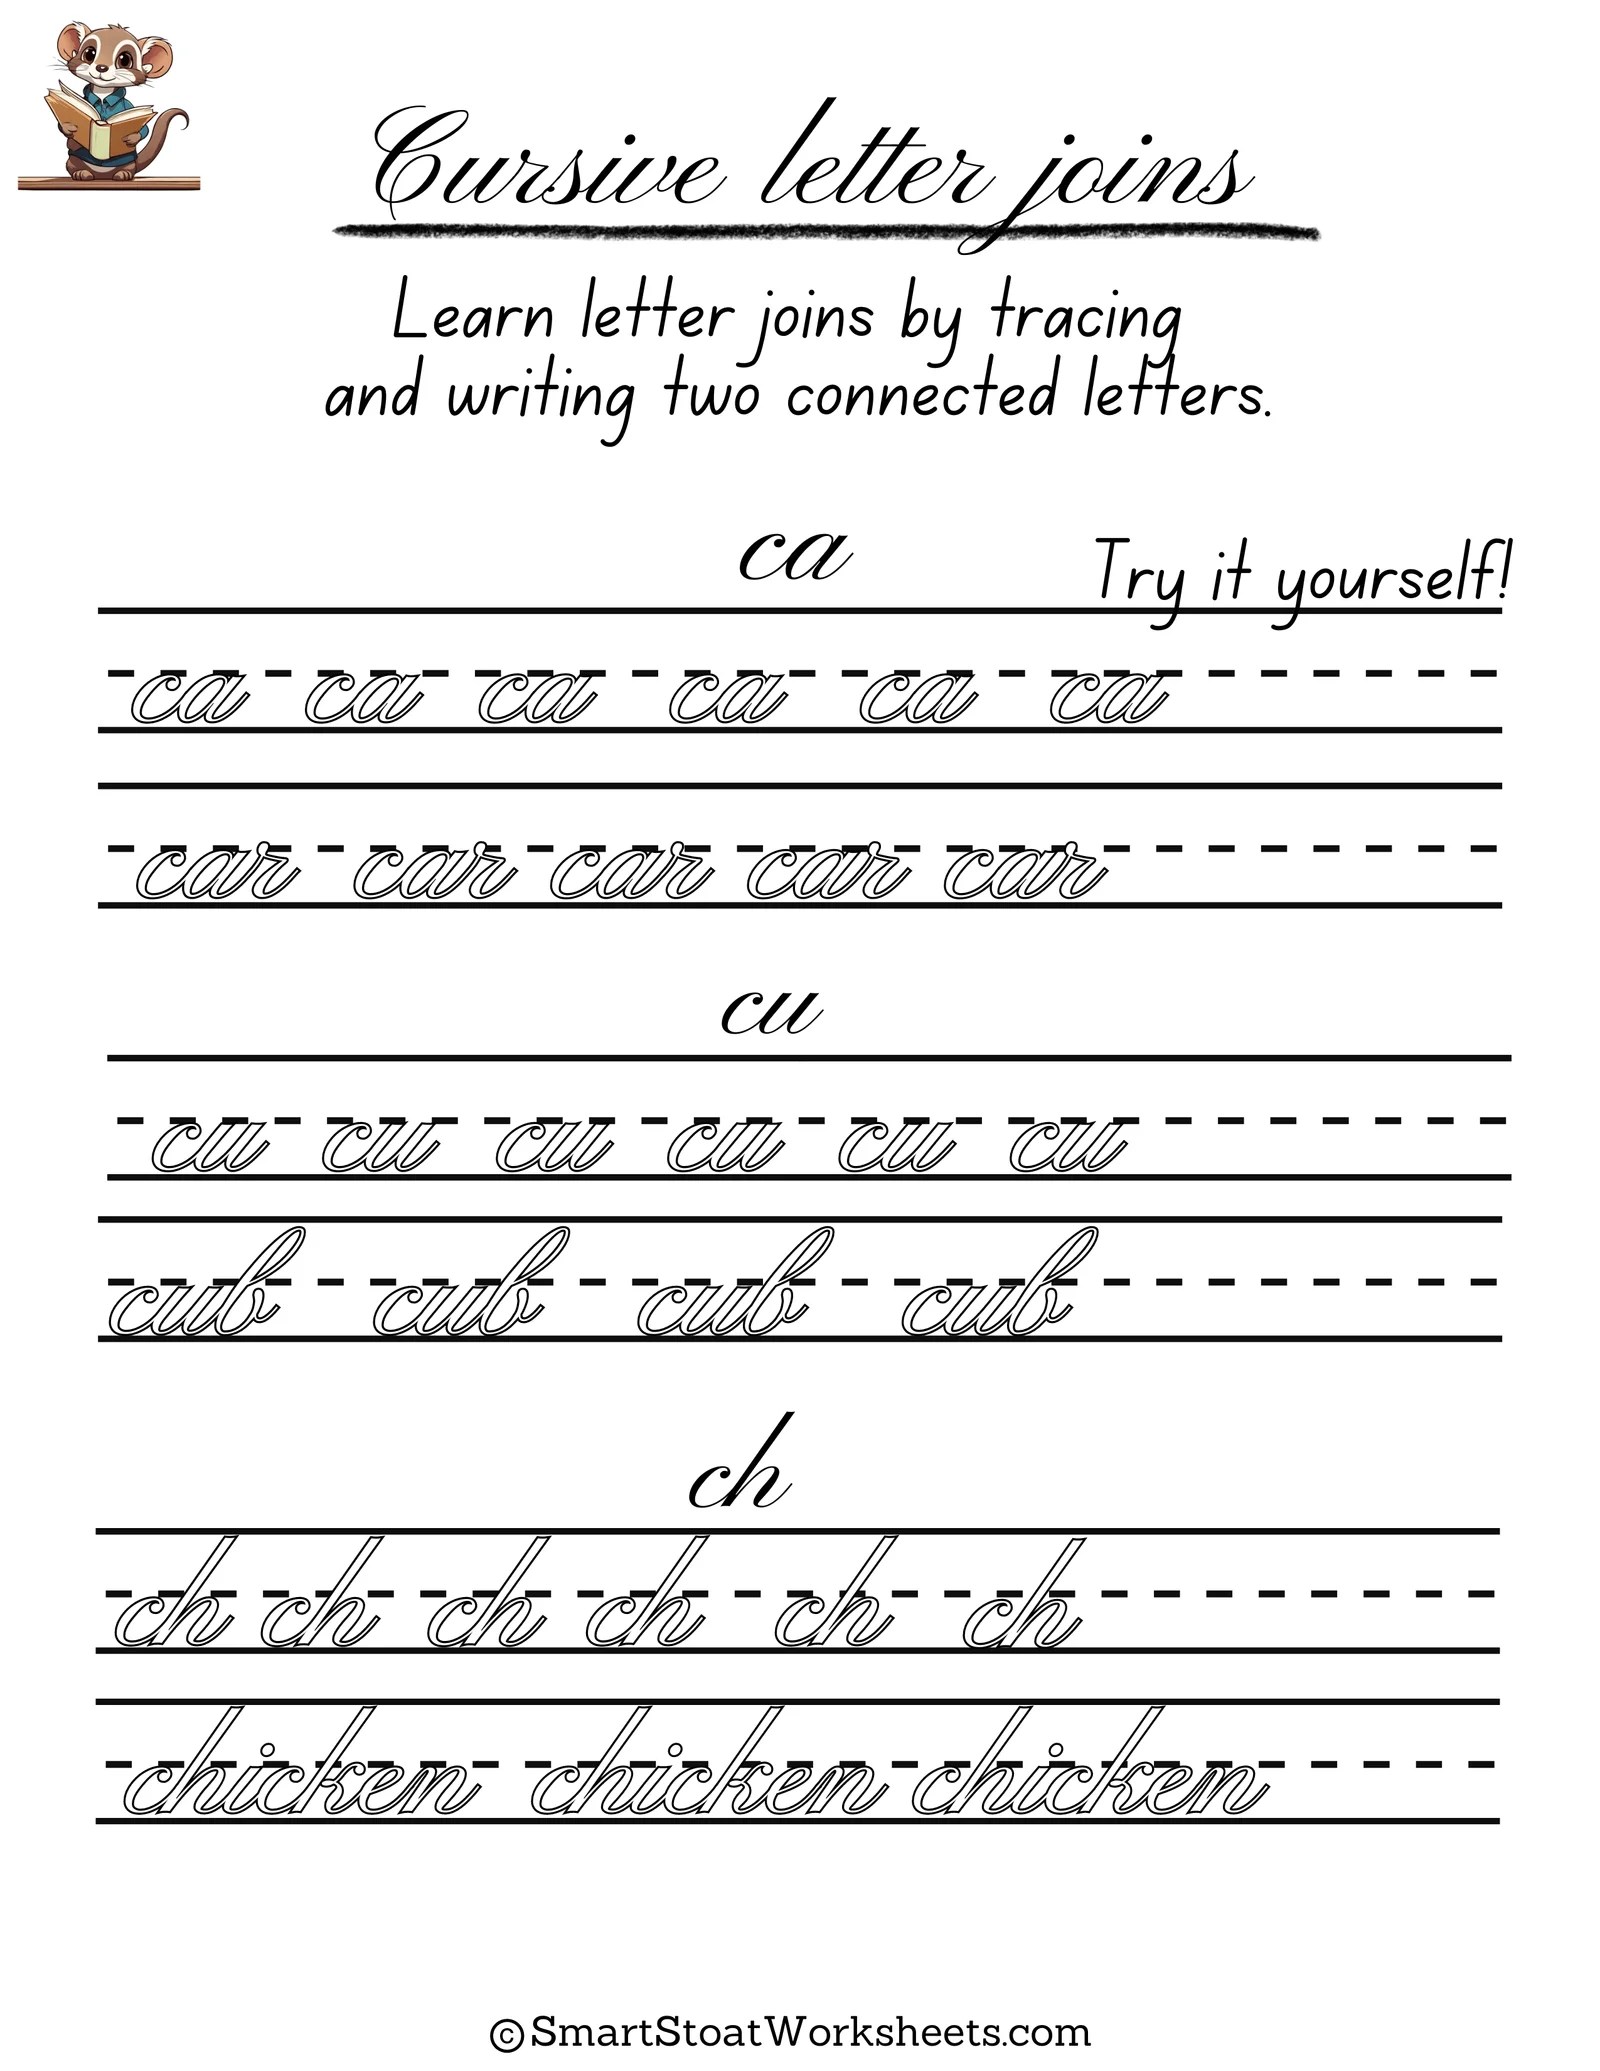 Cursive letter joins
Learn letter joins by tracing
and writing two connected letters.
ca
Try it yourself!
ca ca ca ca ca ca
car car car car car
cu
cu cu cu cu cu cu
cub cub cub cub
ch
ch ch ch ch ch ch
chicken chicken chicken
©SmartStoatWorksheets.com